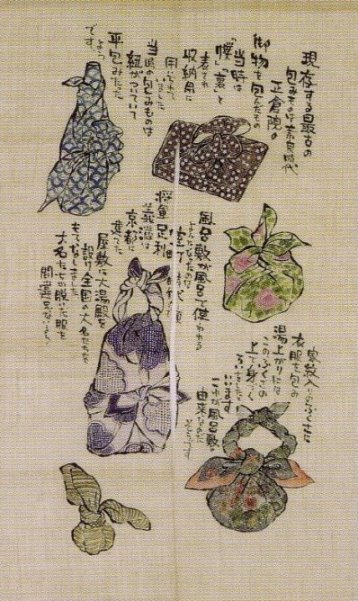 現存する最古の
包みものは奈良時代
正倉院の
御物を包んだもの
当時は
「幞」裏」と
表され
収納用に
用いられて
いました
当時の包みものは
紐がついていて
平包みだった
ようです。
風呂敷が風呂で使われる
ようになったのは
室町時代の頃
将軍足利
義満は
京都に
建てた
屋敷に大湯殿を
設け全国の大名たちを
もてなしました
大名たちが脱いだ服を
間違えないよう
家紋入りのふくさに
衣服を包み
湯上がりには
このふくさの
上で身づくろい
をして
いました
これが風呂敷の
由来なのだ
そうです